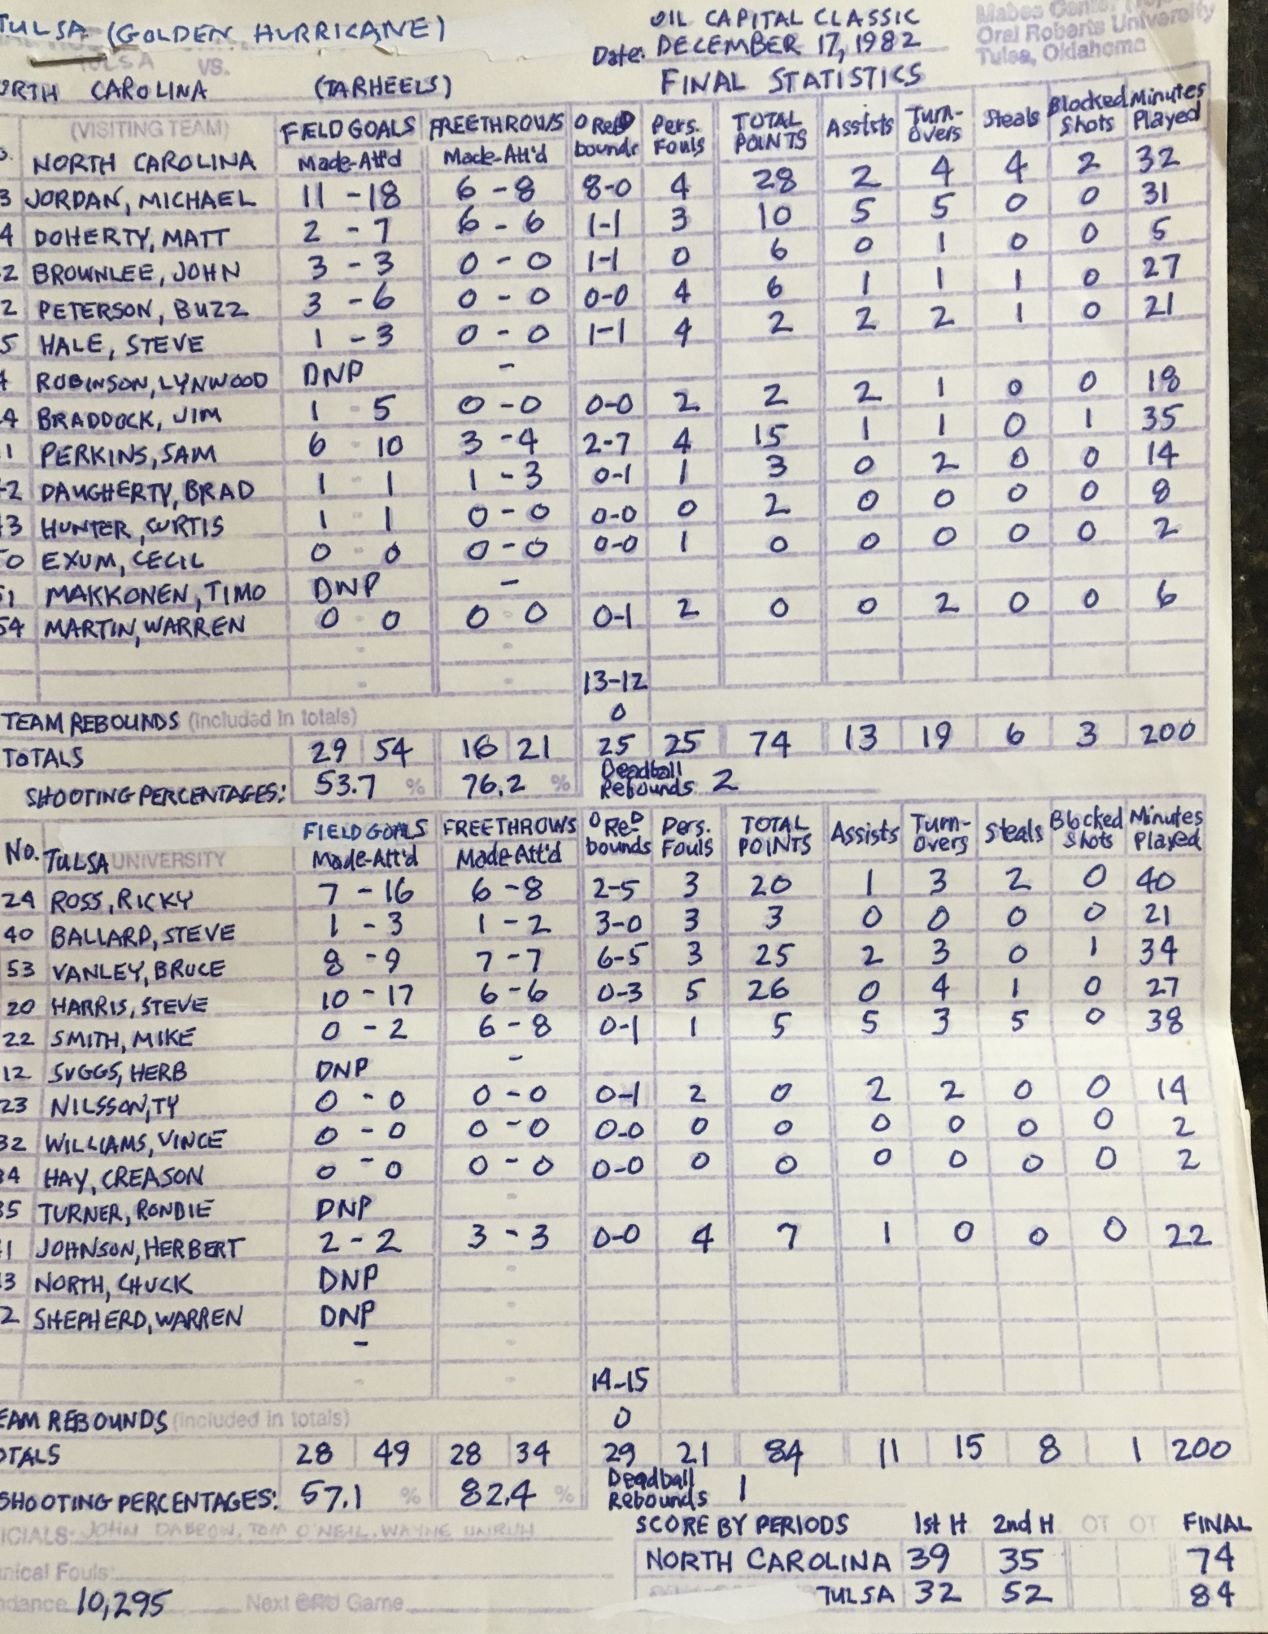 TULSA (GOLDEN HURRICANE)
OIL CAPITAL CLASSIC
Date: DECEMBER 17, 1982
Mabee Center
Oral Roberts University
Tulsa, Oklahoma
TULSA VS.
ORTH CAROLINA (TARHEELS)
FINAL STATISTICS
(VISITING TEAM) FIELD GOALS FREETHROWS O Re D Pers. TOTAL Assists Turn- Steals Blocked Minutes
NORTH CAROLINA Made-Att'd Made-Att'd bounds Fouls POINTS overs Shots Played
3 JORDAN, MICHAEL 11 - 18 6 - 8 8-0 4 28 2 4 4 2 32
4 DOHERTY, MATT 2 - 7 6 - 6 1-1 3 10 5 5 0 0 31
2 BROWNLEE, JOHN 3 - 3 0 - 0 1-1 0 6 0 1 0 0 5
2 PETERSON, BUZZ 3 - 6 0 - 0 0-0 4 6 1 1 1 0 27
5 HALE, STEVE 1 - 3 0 - 0 1-1 4 2 2 2 1 0 21
4 ROBINSON, LYNWOOD DNP -
4 BRADDOCK, JIM 1 - 5 0 - 0 0-0 2 2 2 1 0 0 18
1 PERKINS, SAM 6 - 10 3 - 4 2-7 4 15 1 1 0 1 35
2 DAUGHERTY, BRAD 1 - 1 1 - 3 0-1 1 3 0 2 0 0 14
3 HUNTER, CURTIS 1 - 1 0 - 0 0-0 0 2 0 0 0 0 8
0 EXUM, CECIL 0 - 0 0 - 0 0-0 1 0 0 0 0 0 2
51 MAKKONEN, TIMO DNP -
54 MARTIN, WARREN 0 - 0 0 - 0 0-1 2 0 0 2 0 0 6
13-12
TEAM REBOUNDS (included in totals) 0
TOTALS 29 54 16 21 25 25 74 13 19 6 3 200
SHOOTING PERCENTAGES: 53.7 % 76.2 % Deadball Rebounds 2
No. TULSA UNIVERSITY FIELD GOALS FREETHROWS O Re D Pers. TOTAL Assists Turn- Steals Blocked Minutes
Made-Att'd Made-Att'd bounds Fouls POINTS overs Shots Played
24 ROSS, RICKY 7 - 16 6 - 8 2-5 3 20 1 3 2 0 40
40 BALLARD, STEVE 1 - 3 1 - 2 3-0 3 3 0 0 0 0 21
53 VANLEY, BRUCE 8 - 9 7 - 7 6-5 3 25 2 3 0 1 34
20 HARRIS, STEVE 10 - 17 6 - 6 0-3 5 26 0 4 1 0 27
22 SMITH, MIKE 0 - 2 6 - 8 0-1 1 5 5 3 5 0 38
12 SUGGS, HERB DNP -
23 NILSSON, TY 0 - 0 0 - 0 0-1 2 0 2 2 0 0 14
32 WILLIAMS, VINCE 0 - 0 0 - 0 0-0 0 0 0 0 0 0 2
34 HAY, CREASON 0 - 0 0 - 0 0-0 0 0 0 0 0 0 2
35 TURNER, RONDIE DNP
1 JOHNSON, HERBERT 2 - 2 3 - 3 0-0 4 7 1 0 0 0 22
3 NORTH, CHUCK DNP
2 SHEPHERD, WARREN DNP
-
14-15
EAM REBOUNDS (included in totals) 0
OTALS 28 49 28 34 29 21 84 11 15 8 1 200
SHOOTING PERCENTAGES: 57.1 % 82.4 % Deadball Rebounds 1
ICIALS: JOHN DABROW, TOM O'NEIL, WAYNE UNRUH
SCORE BY PERIODS 1st H 2nd H OT OT FINAL
nical Fouls:
NORTH CAROLINA 39 35 74
ndance 10,295 Next ORU Game
TULSA 32 52 84